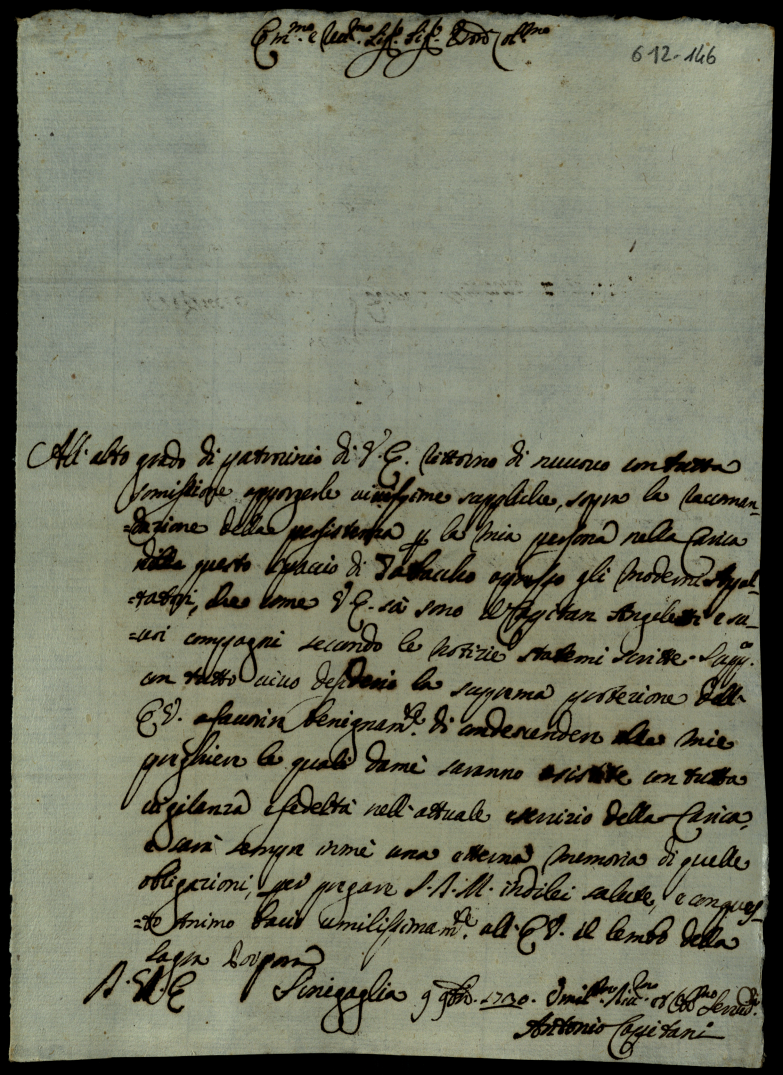 Em.mo e Rev.mo Sig.r Sig.r Pron Col.mo
612-146
All'alto grado di patrocinio di V.E. ritorno di nuovo con tutta
somissione opporgerle umilissime suppliche, sopra la racoman-
=dazione della persistenza p la mia persona nella Carica
dello questo spaccio di Tabaccho appresso gli moderni Appal-
=tatori, che come V.E. sà sono il Capitan Angeletti e su-
=uoi compagni secondo le notizie statemi scritte. Supp.co
con tutto vivo desiderio la suprema protezione dell'
E.V. a favorir benignam.te di condescendere alle mie
preghiere le quali da mè saranno con tutta
vigilanza e fedeltà nell'attuale esercizio della Carica,
e sarà sempre in mè una etterna memoria di quelle
obligazioni, per pregare S.D.M. in di lei salute, e con ques-
=to Animo bacio umilissimam.te all'E.V. il lembo della
sagra Porpora
D.V.E. Sinigaglia 9 9bre. 1730. Umil.mo Div.mo et Obb.mo Servid.
Antonio Capitani